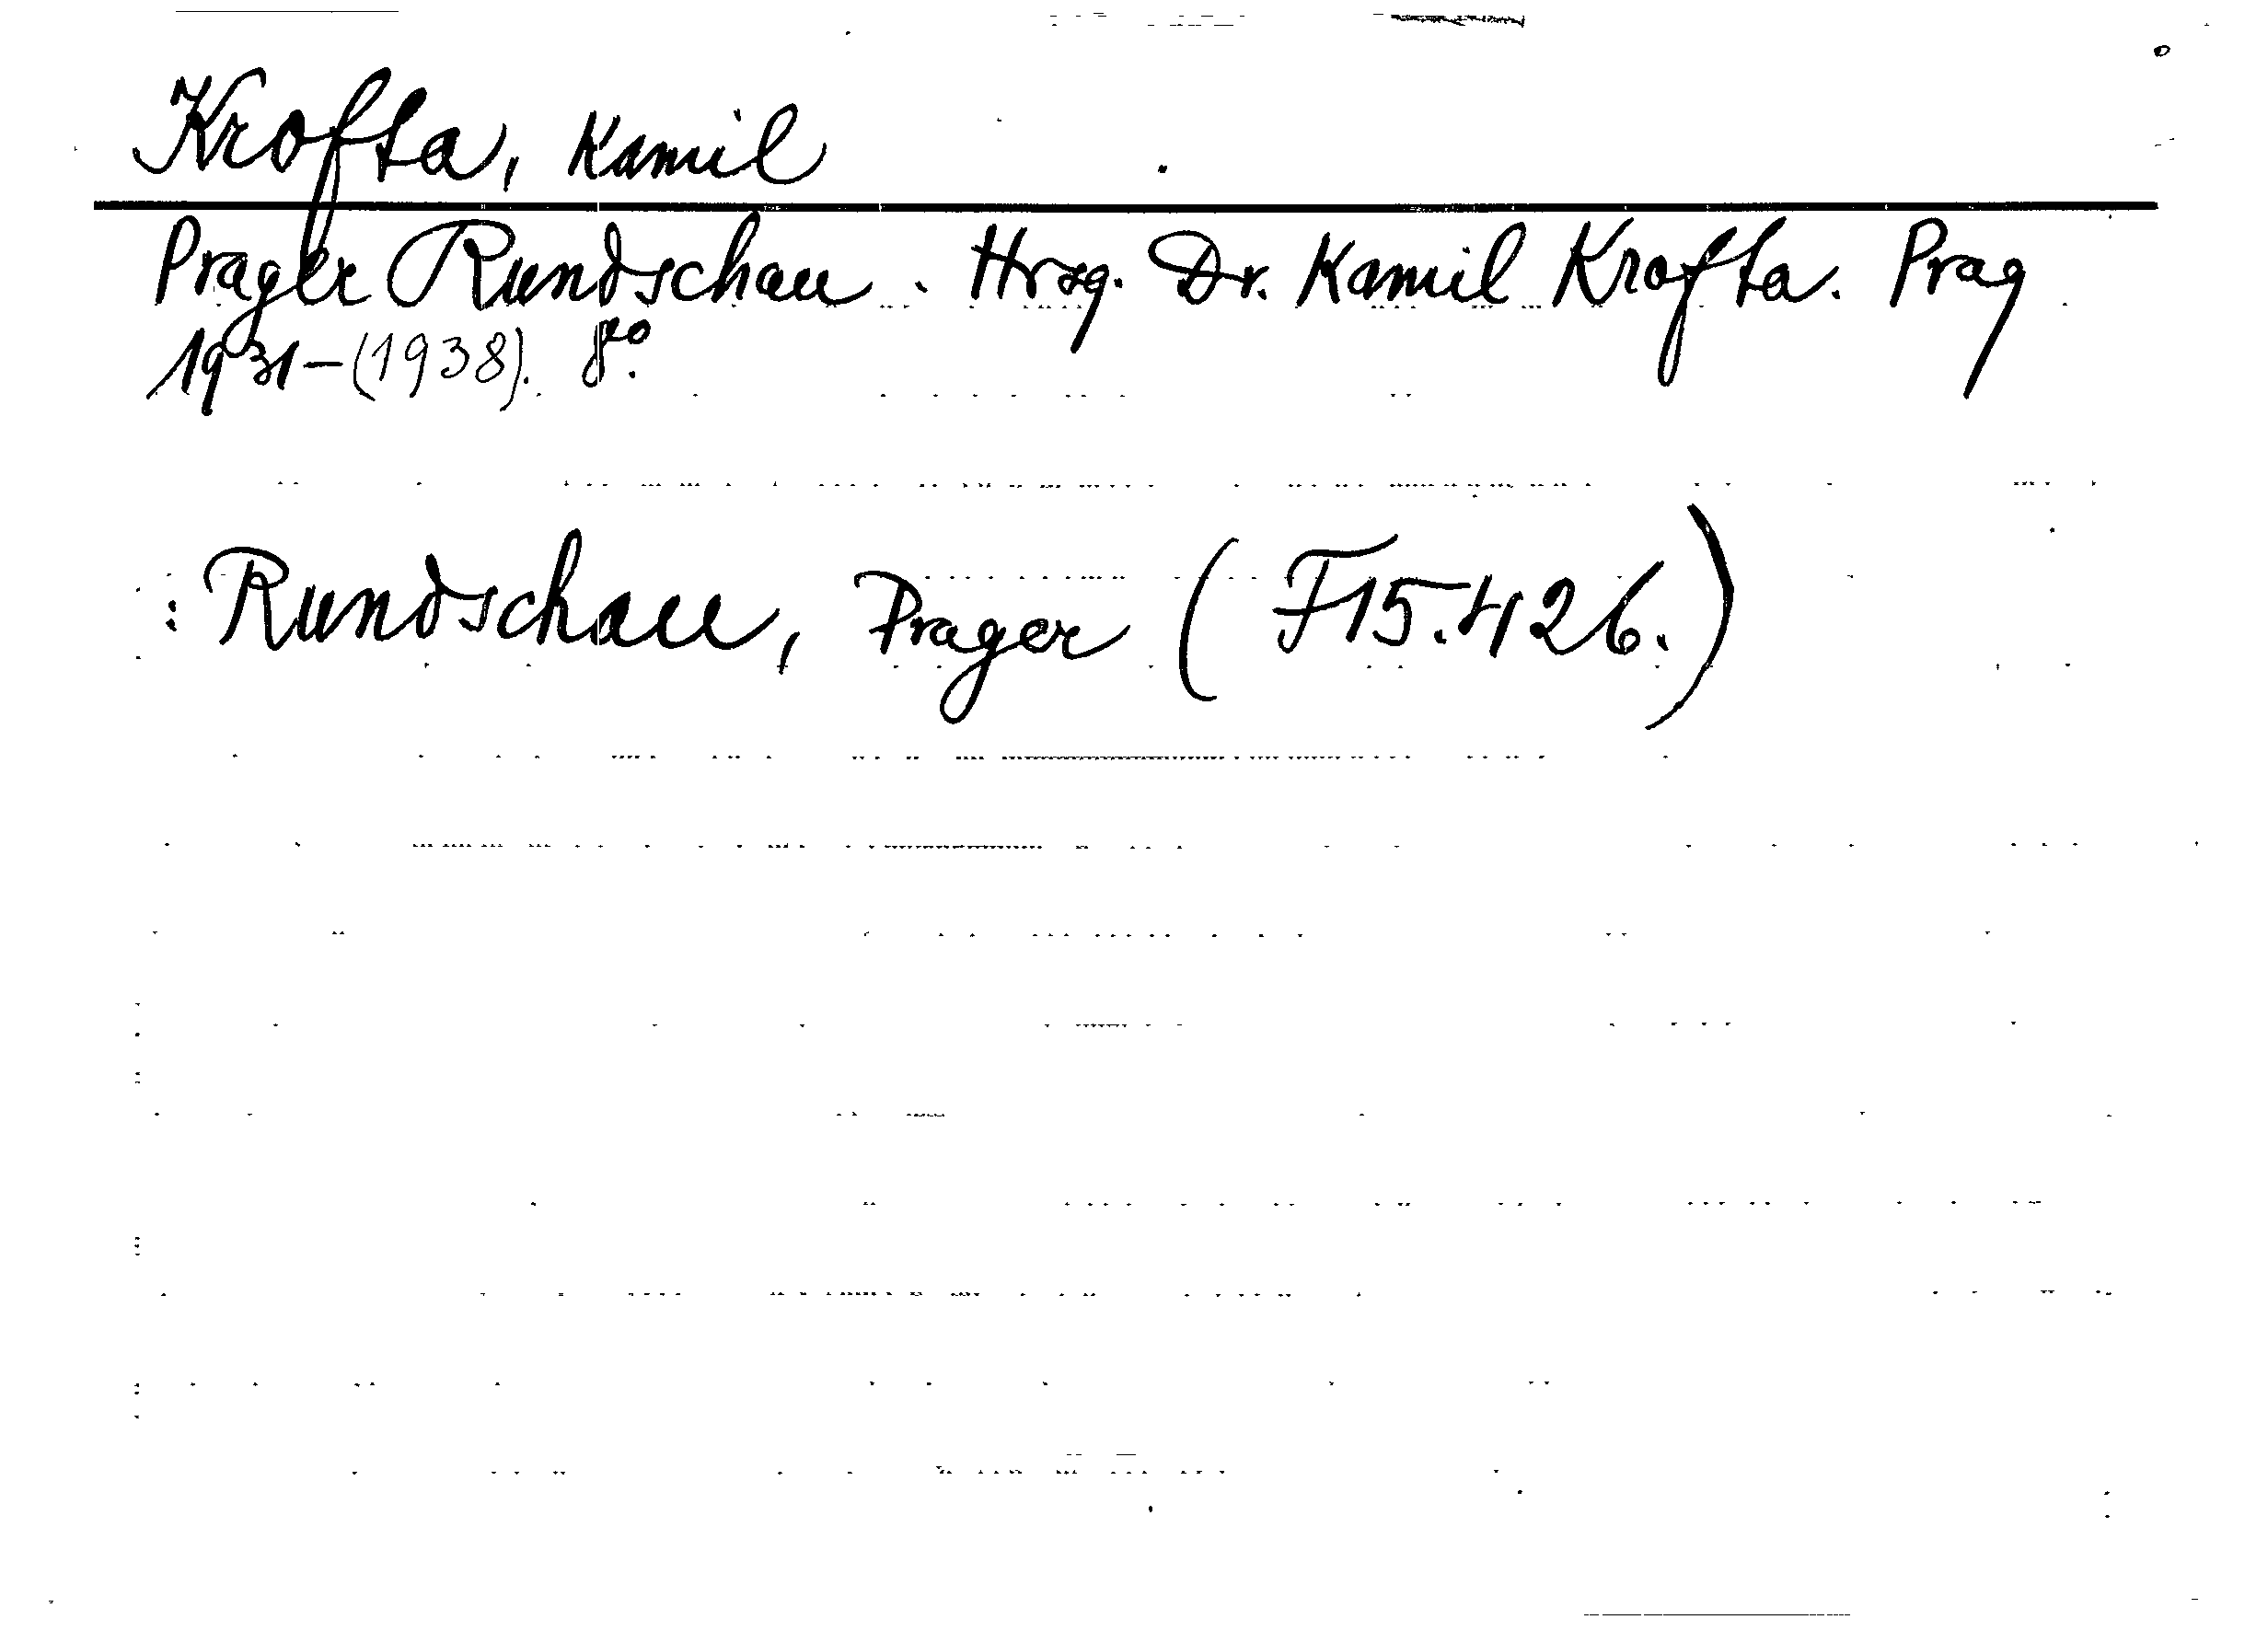 Krofta, Kamil
Prager Rundschau. Hrsg. Dr. Kamil Krofta. Prag
1931-(1938). 8º.
: Rundschau, Prager (F15.426.)